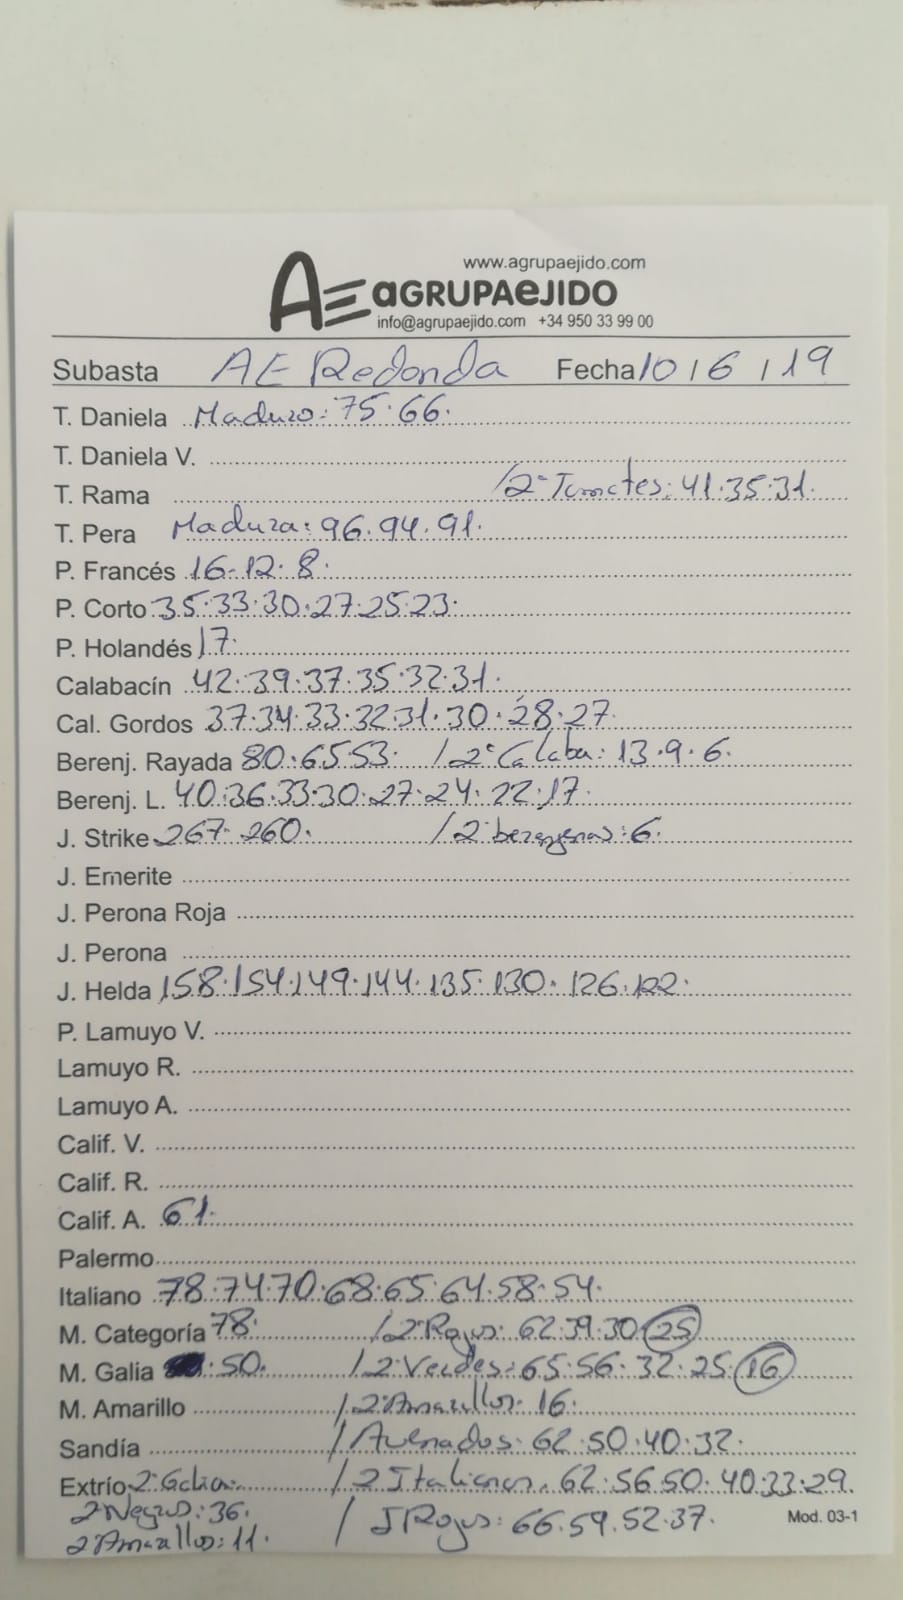 www.agrupaejido.com
AE aGRUPAeJIDO
info@agrupaejido.com +34 950 33 99 00
Subasta AE Redonda Fecha 10 | 6 | 19
T. Daniela Maduro: 75.66.
T. Daniela V.
T. Rama /2ª Tomates: 41.35.31.
T. Pera Madura: 96.94.91.
P. Francés 16-12.8.
P. Corto 35.33.30.27.25.23.
P. Holandés 17.
Calabacín 42.39.37.35.32.31.
Cal. Gordos 37.34.33.32.31.30.28.27.
Berenj. Rayada 80.65.53. /2ª Calaba: 13.9.6.
Berenj. L. 40.36.33.30.27.24.22.17.
J. Strike 267.260. /2ª berengenas: 6.
J. Emerite
J. Perona Roja
J. Perona
J. Helda 158.154.149.144.135.130.126.122.
P. Lamuyo V.
Lamuyo R.
Lamuyo A.
Calif. V.
Calif. R.
Calif. A. 61.
Palermo
Italiano 78.74.70.68.65.64.58.54.
M. Categoría 78. /2ª Rojos: 62.39.30.25
M. Galia .50. /2ª Verdes: 65.56.32.25.16
M. Amarillo /2ª Amarillos: 16.
Sandía / Asurados: 62.50.40.32.
Extrío 2ª Galia. /2 Italianos. 62.56.50.40.33.29.
2ª Negros: 36. / J Rojos: 66.59.52.37. Mod. 03-1
2ª Amarillos: 11.